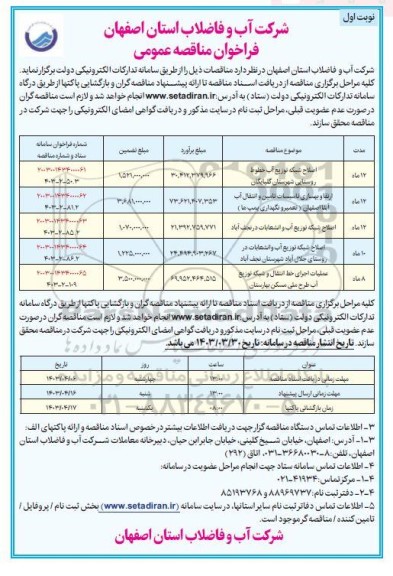 نوبت اول
شرکت آب و فاضلاب استان اصفهان
فراخوان مناقصه عمومی
شرکت آب و فاضلاب استان اصفهان در نظر دارد مناقصات ذیل را از طریق سامانه تدارکات الکترونیکی دولت برگزار نماید.
کلیه مراحل برگزاری مناقصه از دریافت اسناد مناقصه تا ارائه پیشنهاد مناقصه گران و بازگشایی پاکتها از طریق درگاه
سامانه تدارکات الکترونیکی دولت (ستاد) به آدرس: www.setadiran.ir انجام خواهد شد و لازم است مناقصه گران
در صورت عدم عضویت قبلی، مراحل ثبت نام در سایت مذکور و دریافت گواهی امضای الکترونیکی را جهت شرکت در
مناقصه محقق سازند.
مدت موضوع مناقصه مبلغ برآورد مبلغ تضمین شماره فراخوان سامانه ستاد و شماره مناقصه
۱۲ ماه اصلاح شبکه توزیع آب خطوط روستایی شهرستان گلپایگان
۱۲ ماه ارتقا و بهسازی تاسیسات تامین و انتقال آب
۱۲ ماه اصلاح شبکه توزیع آب و انشعابات در نجف آباد
۱۰ ماه اصلاح شبکه توزیع آب و انشعابات در روستای جلال آباد شهرستان نجف آباد
۸ ماه عملیات اجرای خط انتقال و شبکه توزیع آب طرح ملی مسکن بهارستان
کلیه مراحل برگزاری مناقصه از دریافت اسناد مناقصه تا ارائه پیشنهاد مناقصه گران و بازگشایی پاکتها از طریق درگاه سامانه
تدارکات الکترونیکی دولت (ستاد) به آدرس www.setadiran.ir انجام خواهد شد و لازم است مناقصه گران در صورت
عدم عضویت قبلی، مراحل ثبت نام در سایت مذکور و دریافت گواهی امضای الکترونیکی را جهت شرکت در مناقصه محقق
سازند. تاریخ انتشار مناقصه در سامانه: تاریخ ۱۴۰۳/۰۳/۳۰ می باشد.
عنوان ساعت روز تاریخ
مهلت زمانی دریافت اسناد مناقصه ۱۳:۰۰ چهارشنبه
مهلت زمانی ارسال پیشنهاد ۱۳:۰۰ شنبه ۱۴۰۳/۰۴/۱۶
زمان بازگشایی پاکتها یکشنبه ۱۴۰۳/۰۴/۱۷
۳- اطلاعات تماس دستگاه مناقصه گزار جهت دریافت اطلاعات بیشتر در خصوص اسناد مناقصه و ارائه پاکتهای الف:
۳-۱- آدرس: اصفهان، خیابان شیخ کلینی، خیابان جابر ابن حیان، دبیرخانه معاملات شرکت آب و فاضلاب استان
اصفهان، تلفن: ۸-۳۶۶۸۰۰۳۰-۰۳۱ (اتاق ۲۹۲)
۴- اطلاعات تماس سامانه ستاد جهت انجام مراحل عضویت در سامانه:
۴-۱- مرکز تماس: ۴۱۹۳۴-۰۲۱
۴-۲- دفتر ثبت نام: ۸۸۹۶۹۷۳۷ و ۸۵۱۹۳۷۶۸
۵- اطلاعات تماس دفاتر ثبت نام سایر استانها، در سایت سامانه (www.setadiran.ir) بخش ثبت نام / پروفایل /
تامین کننده / مناقصه گر موجود است.
شرکت آب و فاضلاب استان اصفهان